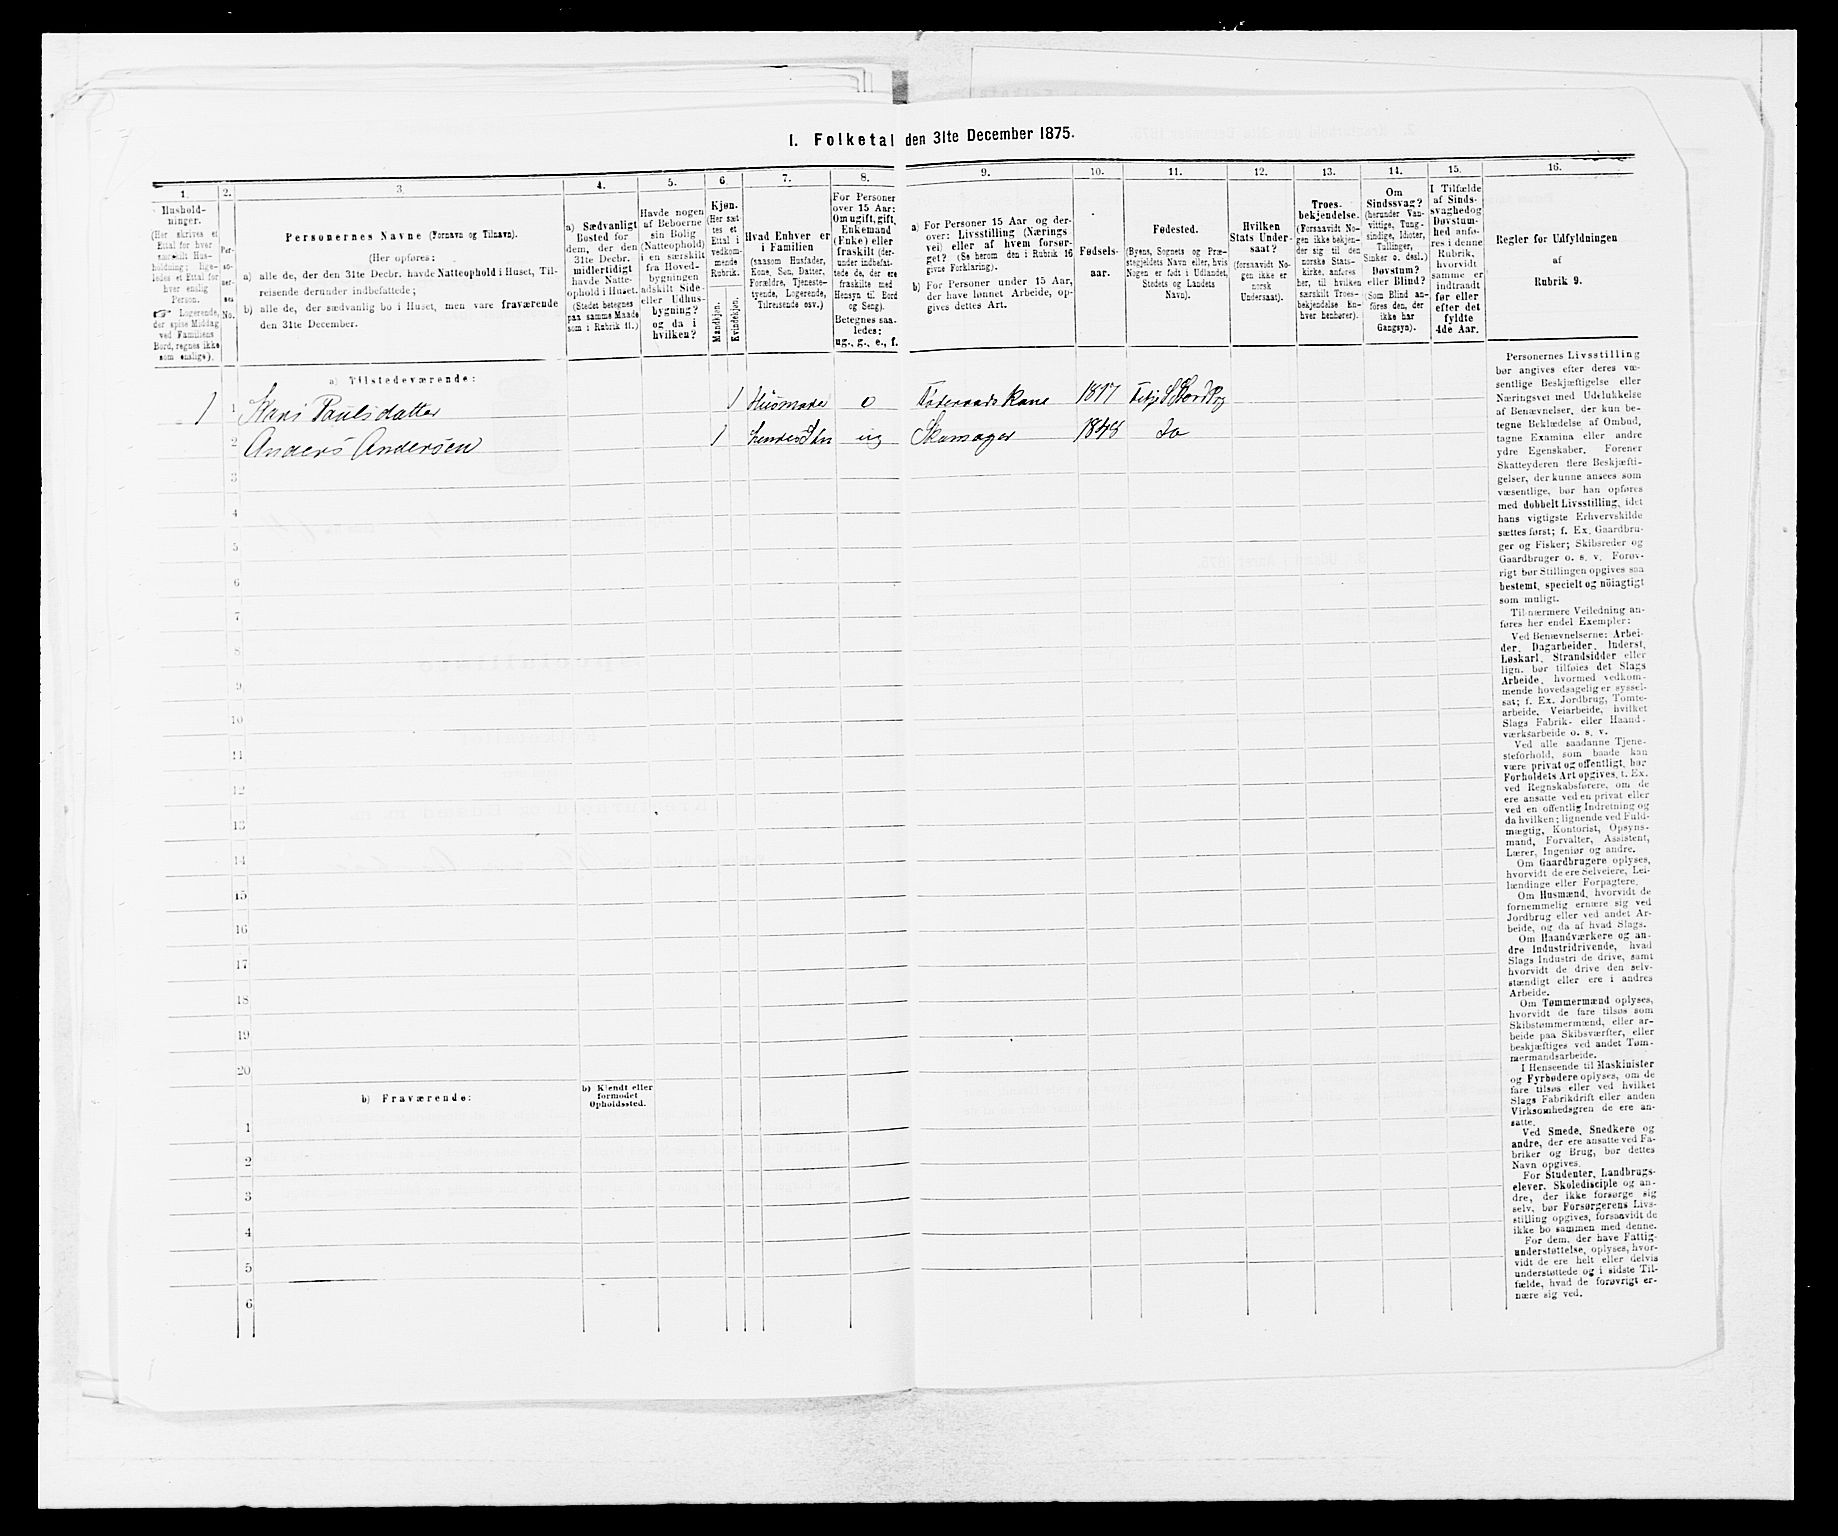 I. Folketal den 31te December 1875.
1.
Hushold-
ninger.
(Her skrives et
Ettal for hver
særskilt Hus-
holdning; lige-
ledes et Ettal for
hver enslig
Person.
☛ Logerende,
der spise Middag
ved Familiens
Bord, regnes ikke
som enslige).
2.
Per-
so-
ner-
nes
No.
3.
Personernes Navne (Fornavn og Tilnavn).
(Her opføres:
a) alle de, der den 31te Decbr. havde Natteophold i Huset, Til-
reisende derunder indbefattede;
b) alle de, der sædvanlig bo i Huset, men vare fraværende
den 31te December.
4.
a) Sædvanligt
Bosted for
dem, der den
31te Decbr.
midlertidigt
havde Natte-
ophold i Huset.
(Stedet betegnes
paa samme Maade
som i Rubrik 11.)
5.
Havde nogen
af Beboerne
sin Bolig
(Natteophold)
i en særskilt
fra Hoved-
bygningen
adskilt Side-
eller Udhus-
bygning?
og da i
hvilken?
6.
Kjøn.
(Her sæt-
tes et
Ettal i
vedkom-
mende
Rubrik.
Mandkjøn.
Kvindekjøn.
7.
Hvad Enhver er
i Familien
(saasom Husfader,
Kone, Søn, Datter,
Forældre, Tjeneste-
tyende, Logerende,
Tilreisende osv.)
8.
For Personer
over 15 Aar:
Om ugift, gift,
Enkemand
(Enke) eller
fraskilt (der-
under indbefat-
tede de, der ere
fraskilte med
Hensyn til Bord
og Seng).
Betegnes saa-
ledes:
ug., g., e., f.
9.
a) For Personer 15 Aar og der-
over: Livsstilling (Nærings-
vei) eller af hvem forsør-
get? (Se herom den i Rubrik 16
givne Forklaring).
b) For Personer under 15 Aar,
der have lønnet Arbeide, op-
gives dettes Art.
10.
Fødsels-
aar.
11.
Fødested.
(Byens, Sognets og Præ-
stegjeldets Navn eller, hvis
Nogen er født i Udlandet,
Stedets og Landets
Navn).
12.
Hvilken
Stats Under-
saat?
(forsaavidt No-
gen ikke er
norsk
Undersaat).
13.
Troes-
bekjendelse.
(Forsaavidt No-
gen ikke bekjen-
der sig til den
norske Stats-
kirke, anføres
her, til hvilken
særskilt Troes-
bekjendelse En-
hver henhører).
14.
Om
Sindssvag?
(herunder Van-
vittige, Tung-
sindige, Idioter,
Tullinger,
Sinker o. desl.)
Døvstum?
eller Blind?
(Som Blind an-
føres den, der
ikke har
Gangsyn).
15.
I Tilfælde
af Sinds-
svaghed og
Døvstum-
hed anfø-
res i denne
Rubrik,
hvorvidt
samme er
indtraadt
før eller
efter det
fyldte
4de Aar.
16.
Regler for Udfyldningen
af
Rubrik 9.
a) Tilstedeværende:
1 1 Paulsdatter 1 0 1817
2 Anders Andersen 1 ug Skomager Do
3
4
5
6
7
8
9
10
11
12
13
14
15
16
17
18
19
20
b) Fraværende:
b) Kjendt eller
formodet
Opholdssted.
1
2
3
4
5
6
Personernes Livsstilling
bør angives efter deres væ-
sentlige Beskjæftigelse eller
Næringsvei med Udelukkelse
af Benævnelser, der kun be-
tegne Beklædelse af Ombud,
tagne Examina eller andre
ydre Egenskaber. Forener
Skatteyderen flere Beskjæfti-
gelser, der kunne ansees som
væsentlige, bør han opføres
med dobbelt Livsstilling, idet
hans vigtigste Erhvervskilde
sættes først; f. Ex. Gaardbru-
ger og Fisker; Skibsreder og
Gaardbruger o. s. v. Forøv-
rigt bør Stillingen opgives saa
bestemt, specielt og nöiagtigt
som muligt.
Til nærmere Veiledning an-
føres her endel Exempler:
Ved Benævnelserne: Arbei-
der, Dagarbeider, Inderst,
Løskarl, Strandsidder eller
lign. bør tilføies det Slags
Arbeide, hvormed vedkom-
mende hovedsagelig er syssel-
sat; f. Ex. Jordbrug, Tomte-
arbeide, Veiarbeide, hvilket
Slags Fabrik- eller Haand-
værksarbeide o. s. v.
Ved alle saadanne Tjene-
steforhold, som baade kan
være privat og offentligt, bør
Forholdets Art opgives, t. Ex.
ved Regnskabsførere, om de
ere ansatte ved en privat eller
ved en offentlig Indretning og
da hvilken; lignende ved Fuld-
mægtig, Kontorist, Opsyns-
mand, Forvalter, Assistent,
Lærer, Ingeniør og andre.
Om Gaardbrugere oplyses,
hvorvidt de ere Selveiere, Lei-
lændinge eller Forpagtere.
Om Husmænd, hvorvidt de
fornemmelig ernære sig ved
Jordbrug eller ved andet Ar-
beide, og da af hvad Slags.
Om Haandværkere og an-
dre Industridrivende, hvad
Slags Industri de drive, samt
hvorvidt de drive den selv-
stændigt eller ere i andres
Arbeide.
Om Tømmermænd oplyses,
hvorvidt de fare tilsøs som
Skibstømmermænd, eller ar-
beide paa Skibsværfter, eller
beskjæftiges ved andet Tøm-
mermandsarbeide.
I Henseende til Maskinister
og Fyrbødere oplyses, om de
fare tilsøs eller ved hvilket
Slags Fabrikdrift eller anden
Virksomhedsgren de ere an-
satte.
Ved Smede, Snedkere og
andre, der ere ansatte ved Fa-
briker og Brug, bør dettes
Navn opgives.
For Studenter, Landbrugs-
elever, Skoledisciple og an-
dre, der ikke forsørge sig
selv, bør Forsørgerens Livs-
stilling opgives, forsaavidt de
ikke bo sammen med denne.
For dem, der have Fattig-
understøttelse, oplyses, hvor-
vidt de ere helt eller delvis
understøttede og i sidste Til-
fælde, hvad de forøvrigt er-
nære sig ved.